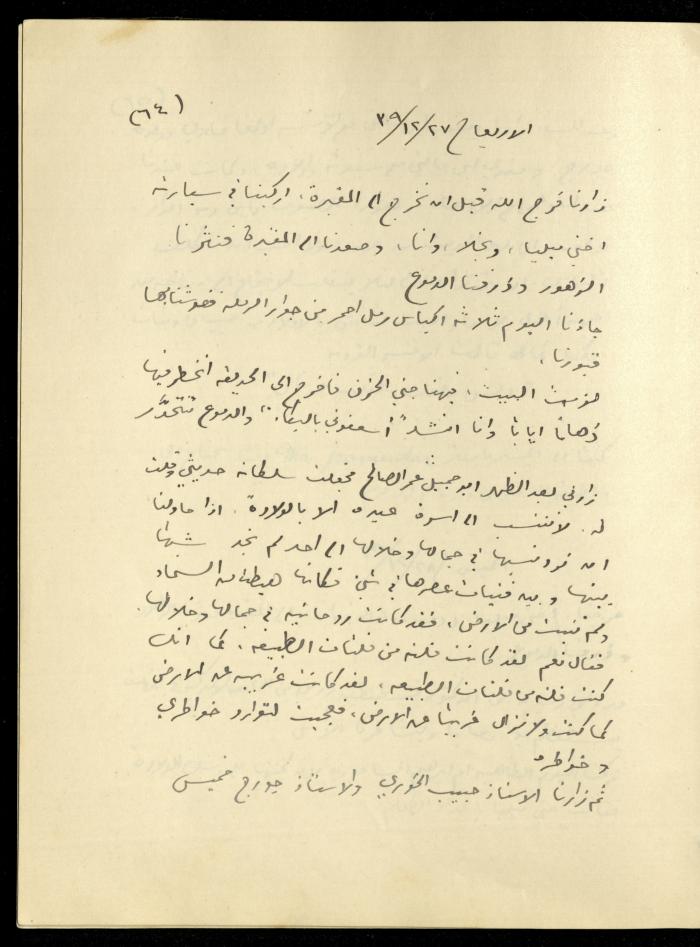 (٦٤)
الاربعاء ٢٧/١٢/٣٩
زارنا فرج الله قبل ان نخرج الى المقبرة، اركبنا في سيارته
اختي ميليا، ونجلا وانا، وصعدنا الى المقبرة فنثرنا
الزهور وذرفنا الدموع
جاءنا اليوم ثلاثة اكياس رمل احمر من جوار الرملة ففرشنا بها
قبورنا،
البيت، فيهتاجني الحزن فاخرج الى الحديقة اتخطر فيها
ذهاباً اياباً وانا انشد "أسعفوني بالبكاء،" والدموع تتحدّر
زارني بعد الظهر ابو جميل عمر الصالح فجعلت سلطانة حديثي وقلت
له. لا تنتسب الى اسرة عبده الا بالولادة. اذا حاولنا
ان نرد نسبها في جمالها وخلالها الى احد لم نجد شبهاً
بينها وبين فتيات عصرها في شيء فكانها هبطت من السماء
ولم تنبت من الارض، فقد كانت روحانية في جمالها وخلالها.
فقال نعم لقد كانت فلتة من فلتات الطبيعة، كما انك
كنت فلتة من فلتات الطبيعة، لقد كانت غريبة عن الارض
كما كنت ولا تزال غريباً عن الارض، فعجبت لتوارد خواطري
وخواطره
ثم زارنا الاستاذ حبيب الخوري والاستاذ جورج خميس